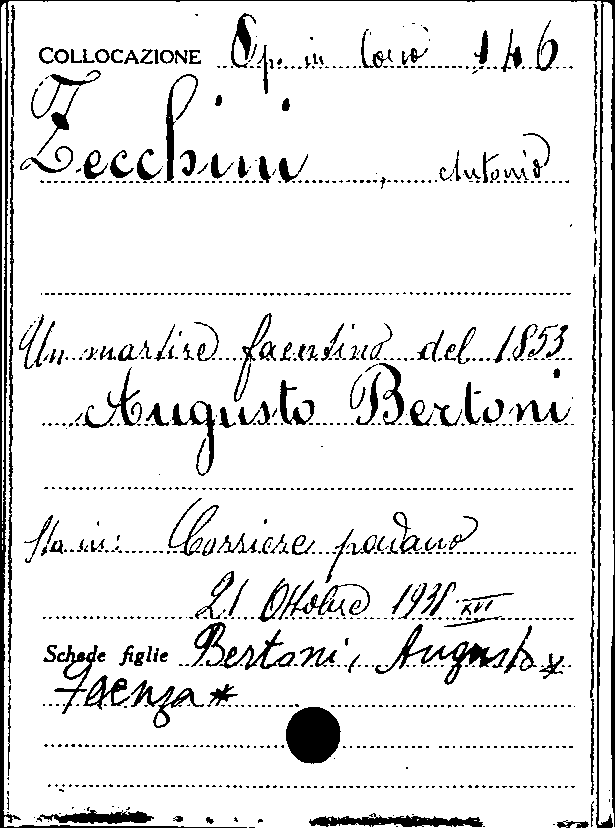 COLLOCAZIONE Op. in Corso 146
Zecchini, Antonio
Un martire faentino del 1853
Augusto Bertoni
Sta in: Corriere padano
21 Ottobre 1938 XVI
Schede figlie Bertoni, Augusto *
Faenza *